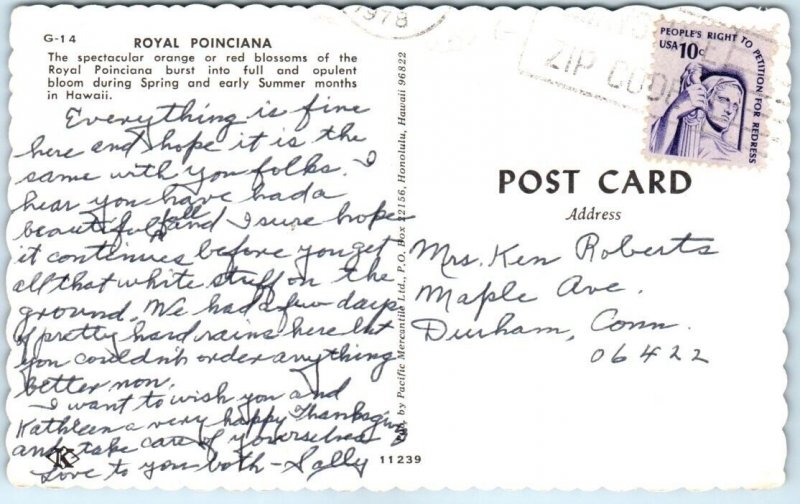 G-14
ROYAL POINCIANA
The spectacular orange or red blossoms of the
Royal Poinciana burst into full and opulent
bloom during Spring and early Summer months
in Hawaii.
Everything is fine
here and hope it is the
same with you folks. I
hear you have had a
beautiful fall and I sure hope
it continues before you get
all that white stuff on the
ground. We had a few days
of pretty hard rains here but
you couldn't order anything
better now.
I want to wish you and
Kathleen a very happy Thanksgiving
and take care of yourselves
Love to you both - Sally
K
11239
by Pacific Mercantile Ltd., P.O. Box 22156, Honolulu, Hawaii 96822
1978
ZIP CODE
PEOPLE'S RIGHT TO PETITION FOR REDRESS
USA 10c
POST CARD
Address
Mrs. Ken Roberts
Maple Ave.
Durham, Conn.
06422